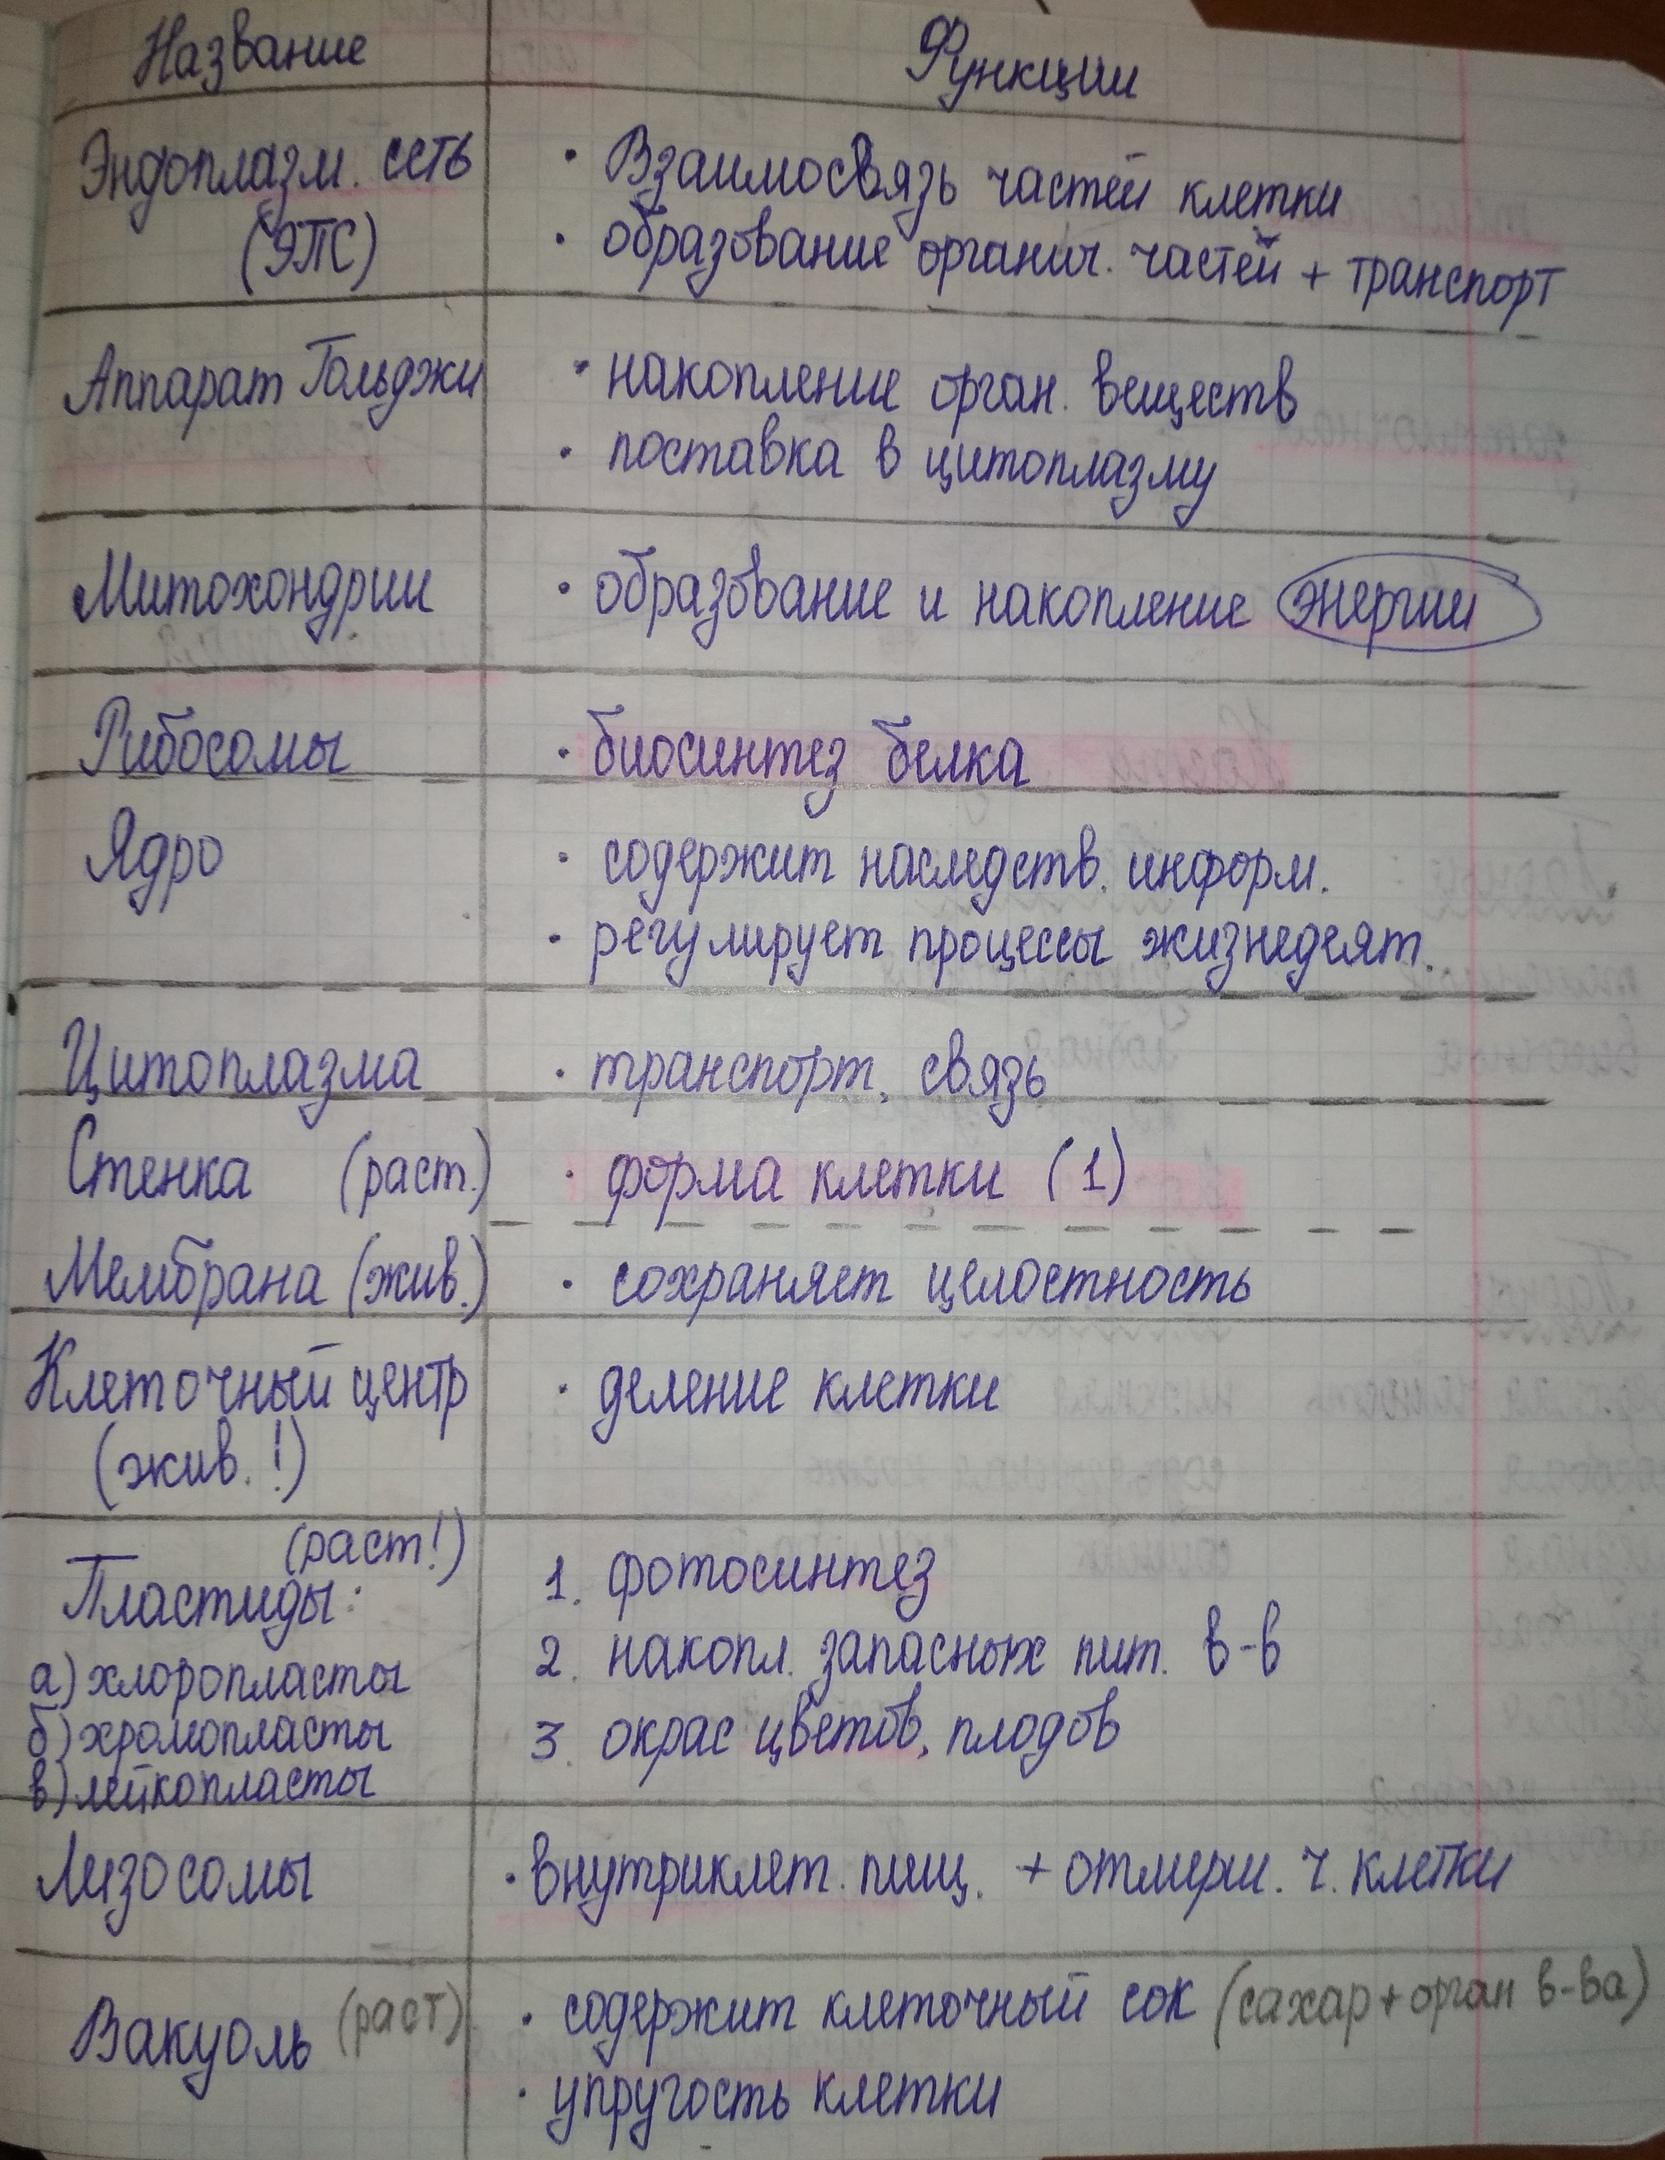 Название Функции
Эндоплазм. сеть • Взаимосвязь частей клетки
(ЭПС) • образование органич. частей + транспорт
Аппарат Гольджи • накопление орган. веществ
• поставка в цитоплазму
Митохондрии • образование и накопление энергии
Рибосомы • биосинтез белка
Ядро • содержит наследств. информ.
• регулирует процессы жизнедеят.
Цитоплазма • транспорт, связь
Стенка (раст.) • форма клетки (1)
Мембрана (жив.) • сохраняет целостность
Клеточный центр • деление клетки
(жив. !)
(раст!)
Пластиды: 1. фотосинтез
а) хлоропласты 2. накопл. запасных пит. в-в
б) хромопласты 3. окрас цветов, плодов
в) лейкопласты
Лизосомы • внутриклет. пищ. + отмерш. ч. клетки
Вакуоль (раст) • содержит клеточный сок (сахар + орган в-ва)
• упругость клетки